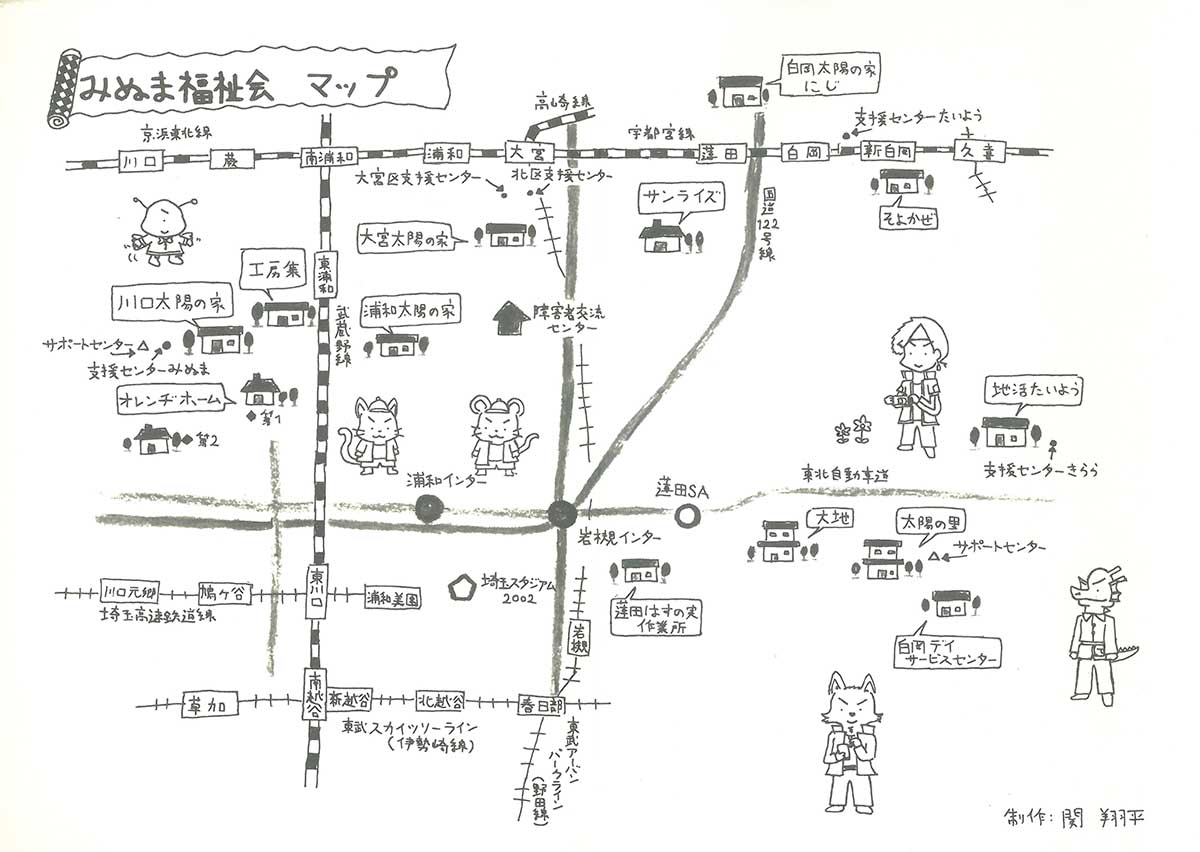 みぬま福祉会 マップ
高崎線
白岡太陽の家
にじ
京浜東北線
宇都宮線
支援センターたいよう
川口
蕨
南浦和
浦和
大宮
蓮田
白岡
新白岡
久喜
大宮区支援センター
北区支援センター
サンライズ
国道122号線
そよかぜ
大宮太陽の家
東浦和
工房集
川口太陽の家
武蔵野線
浦和太陽の家
障害者交流
センター
サポートセンター
支援センターみぬま
オレンヂホーム
第1
第2
地活たいよう
支援センターきらら
浦和インター
蓮田SA
東北自動車道
岩槻インター
大地
太陽の里
サポートセンター
川口元郷
鳩ヶ谷
東川口
浦和美園
埼玉高速鉄道線
埼玉スタジアム
2002
蓮田はすの実
作業所
岩槻
白岡デイ
サービスセンター
草加
南越谷
新越谷
北越谷
春日部
東武スカイツリーライン
(伊勢崎線)
東武アーバン
パークライン
(野田線)
制作:関 翔平